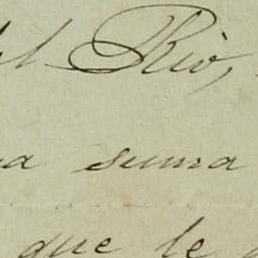 el Rio,
a suma
que le